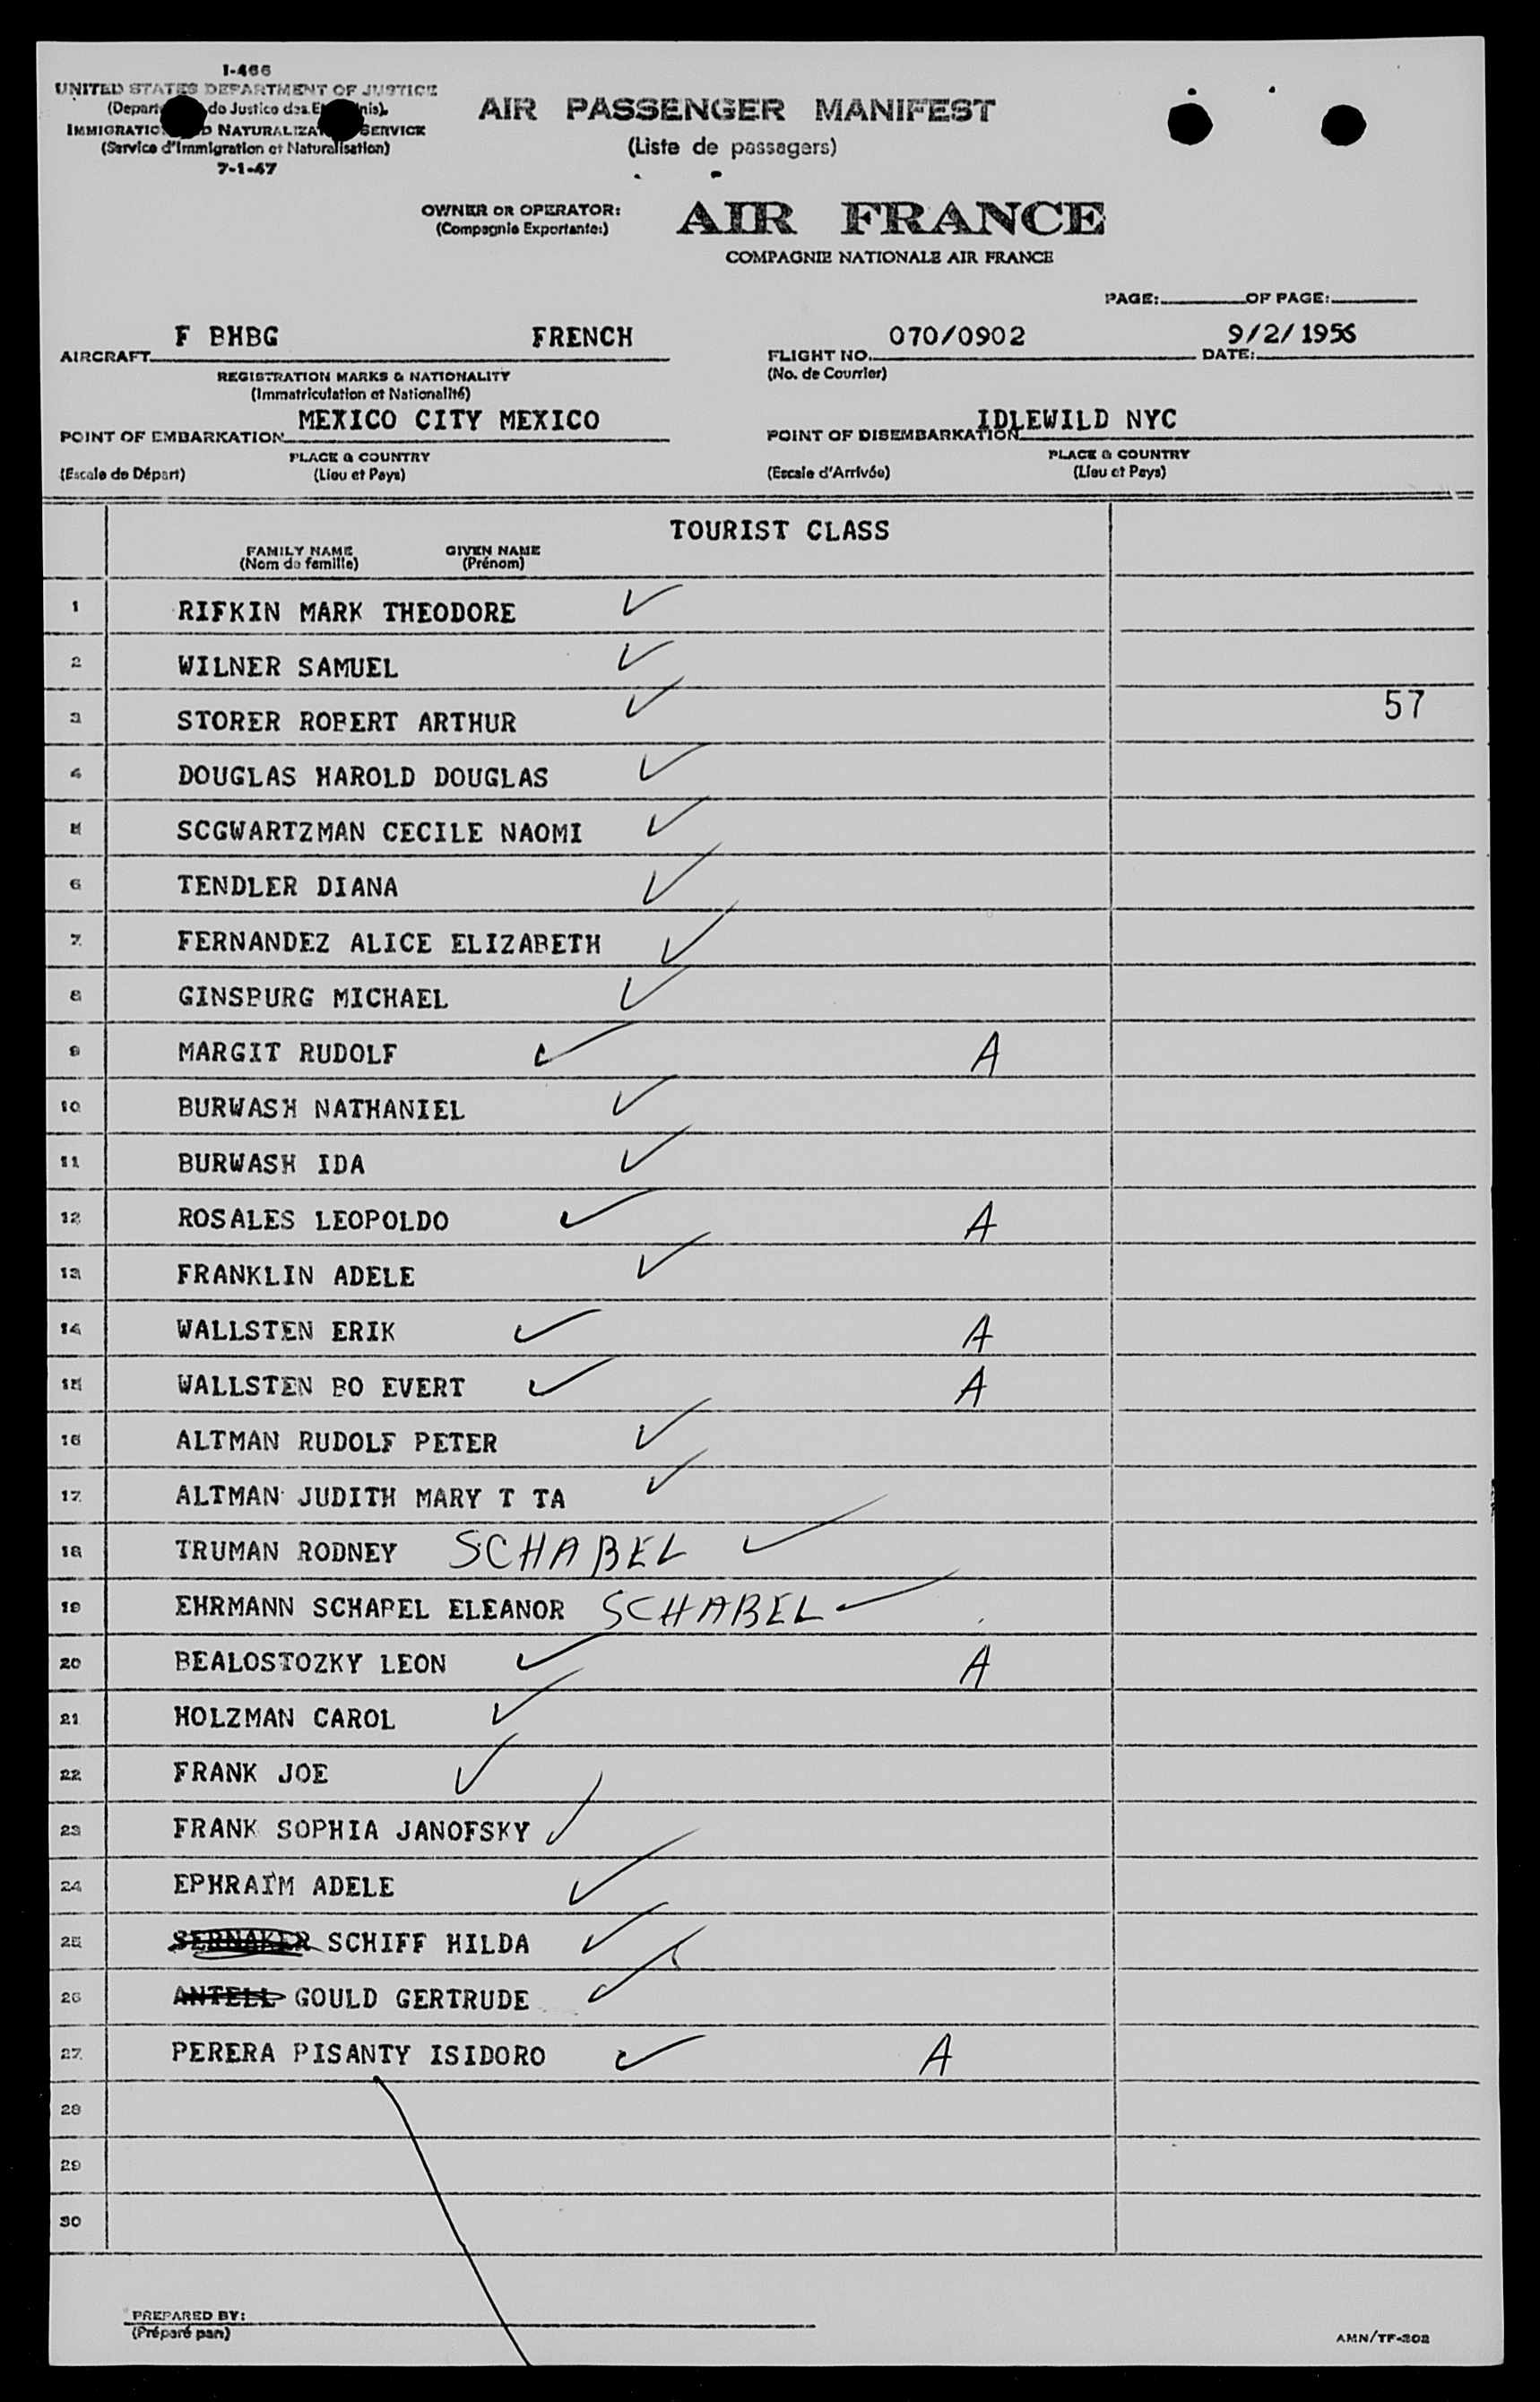 I-466
UNITED STATES DEPARTMENT OF JUSTICE
IMMIGRATION AND NATURALIZATION SERVICE
(Service d'Immigration et Naturalisation)
7-1-47
AIR PASSENGER MANIFEST
(Liste de passagers)
OWNER OR OPERATOR:
(Compagnie Exportante:)
AIR FRANCE
COMPAGNIE NATIONALE AIR FRANCE
PAGE: OF PAGE:
AIRCRAFT F BHBG FRENCH FLIGHT NO. 070/0902 DATE: 9/2/1956
REGISTRATION MARKS & NATIONALITY (No. de Courrier)
(Immatriculation et Nationalité)
POINT OF EMBARKATION MEXICO CITY MEXICO POINT OF DISEMBARKATION IDLEWILD NYC
PLACE & COUNTRY PLACE & COUNTRY
(Escale de Départ) (Lieu et Pays) (Escale d'Arrivée) (Lieu et Pays)
TOURIST CLASS
FAMILY NAME GIVEN NAME
(Nom de famille) (Prénom)
1 RIFKIN MARK THEODORE ✓
2 WILNER SAMUEL ✓
3 STORER ROBERT ARTHUR ✓ 57
4 DOUGLAS HAROLD DOUGLAS ✓
5 SCGWARTZMAN CECILE NAOMI ✓
6 TENDLER DIANA ✓
7 FERNANDEZ ALICE ELIZABETH ✓
8 GINSBURG MICHAEL ✓
9 MARGIT RUDOLF ✓ A
10 BURWASH NATHANIEL ✓
11 BURWASH IDA ✓
12 ROSALES LEOPOLDO ✓ A
13 FRANKLIN ADELE ✓
14 WALLSTEN ERIK ✓ A
15 WALLSTEN BO EVERT ✓ A
16 ALTMAN RUDOLF PETER ✓
17 ALTMAN JUDITH MARY T TA ✓
18 TRUMAN RODNEY SCHABEL ✓
19 EHRMANN SCHABEL ELEANOR SCHABEL ✓
20 BEALOSTOZKY LEON ✓ A
21 HOLZMAN CAROL ✓
22 FRANK JOE ✓
23 FRANK SOPHIA JANOFSKY ✓
24 EPHRAIM ADELE ✓
25 SERNAKER SCHIFF HILDA ✓
26 ANTELL GOULD GERTRUDE ✓
27 PERERA PISANTY ISIDORO ✓ A
28
29
30
PREPARED BY:
(Préparé par:)
AMN/TF-302